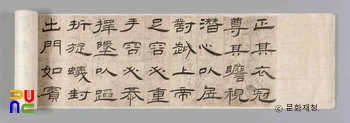 正其衣冠
尊其瞻視
潛心以居
對越上帝
足容必重
手容必恭
擇墬而蹈
折旋蟻封
出門如賓
© 문화재청.